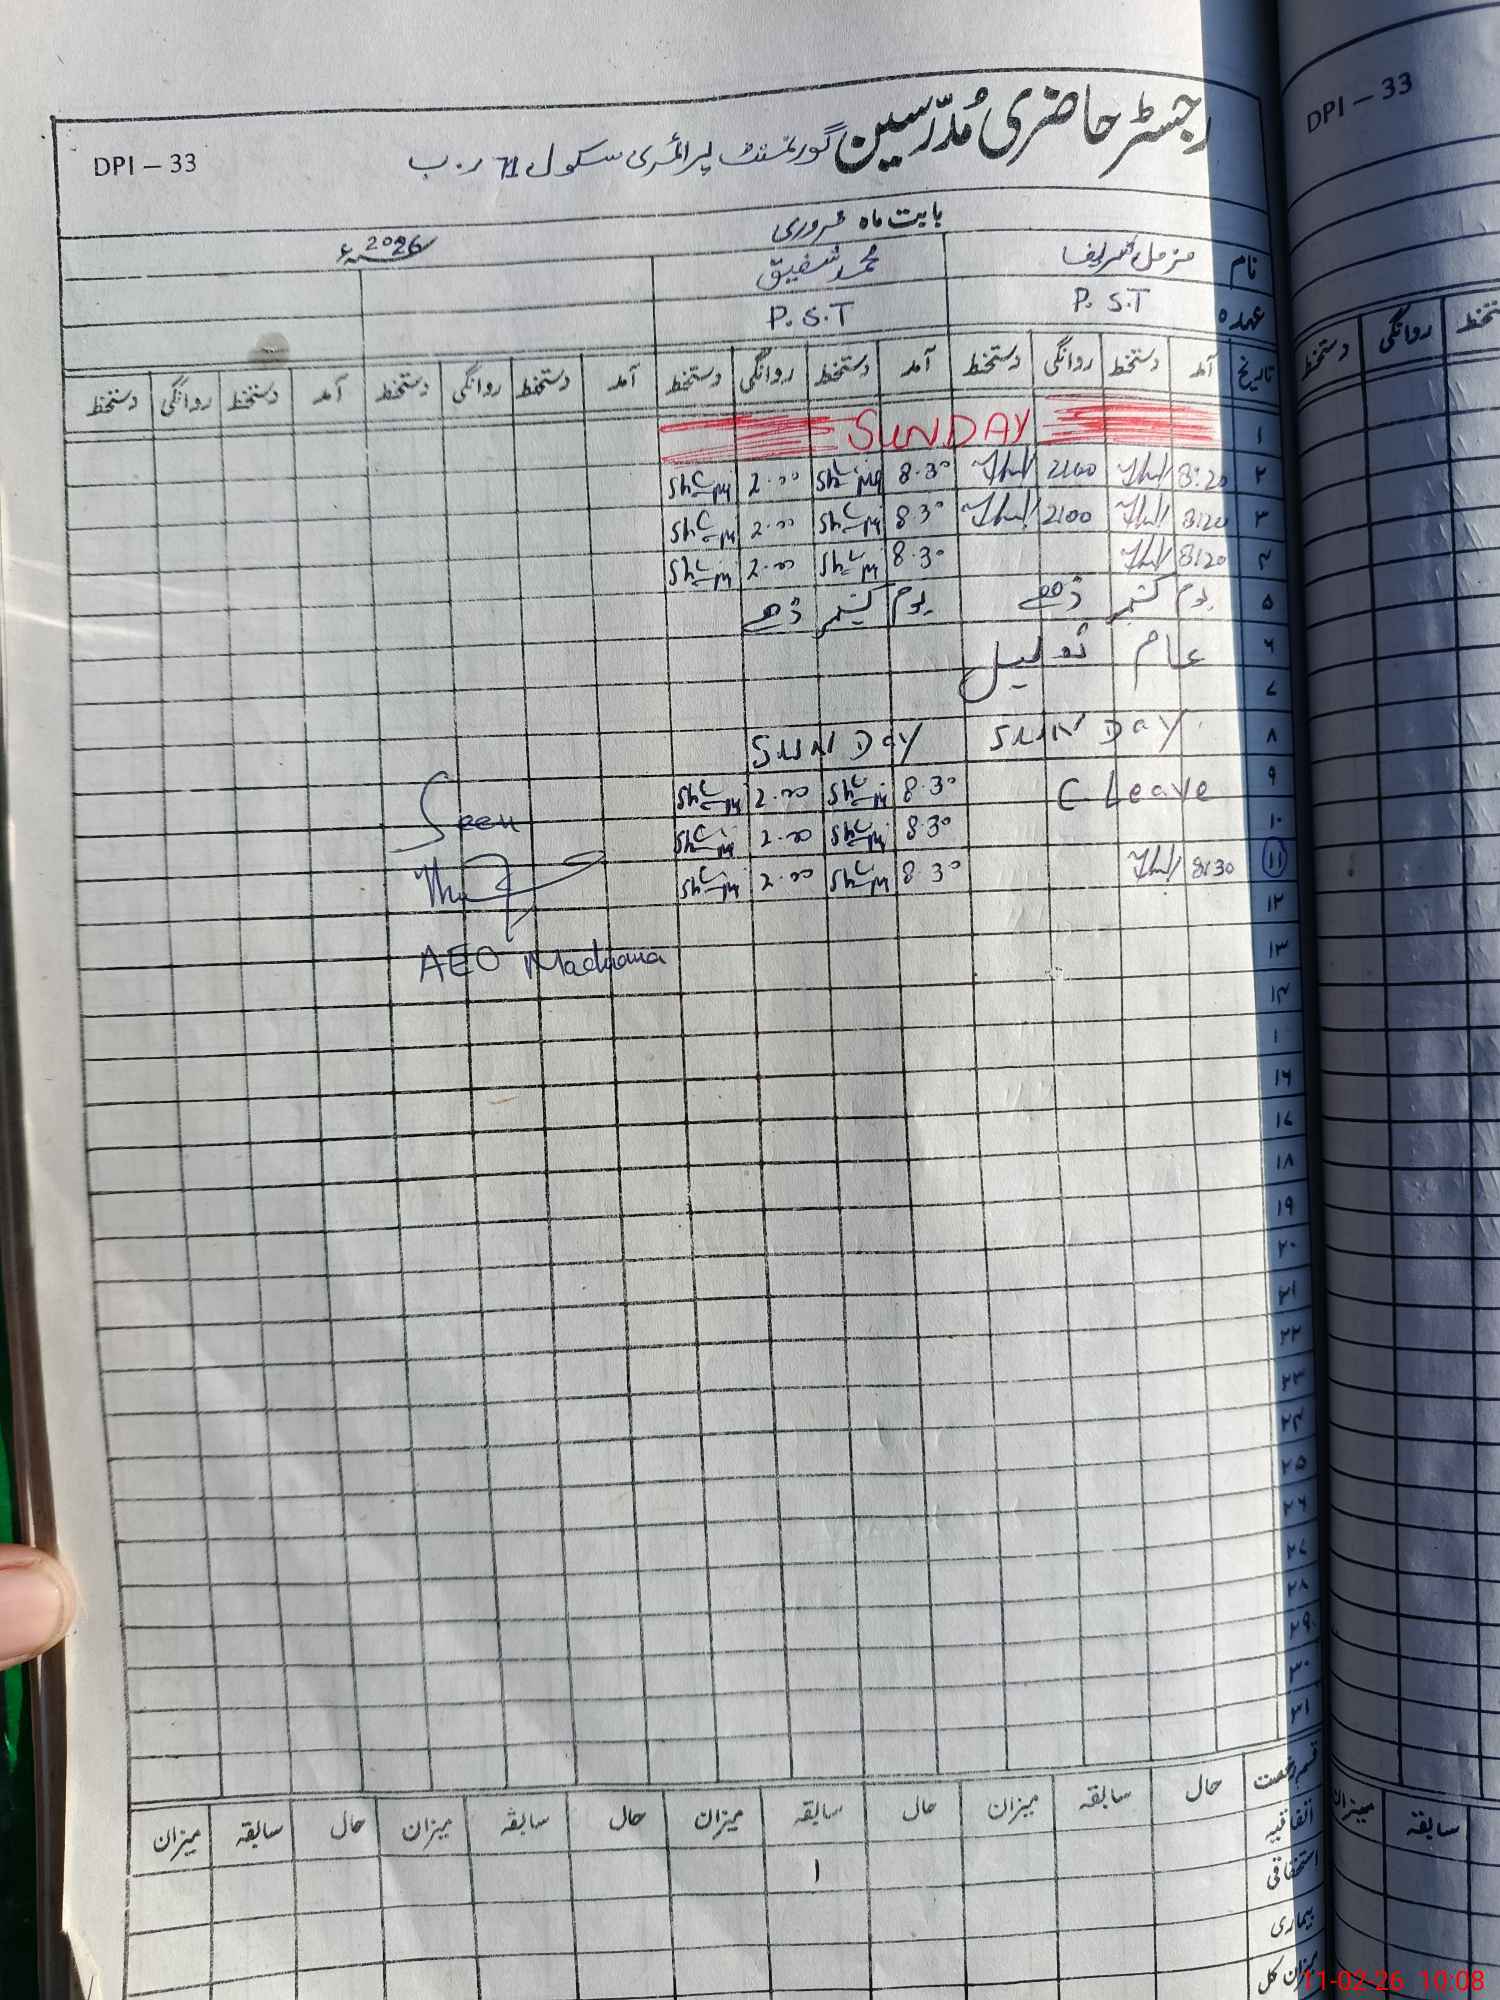 رجسٹر حاضری مُدرّسین گورنمنٹ پرائمری سکول 71 ر.ب
DPI – 33
بابت ماہ فروری 2026ء
نام مزمل شریف محمد شفیق
عہدہ P.S.T P.S.T
تاریخ آمد دستخط روانگی دستخط آمد دستخط روانگی دستخط آمد دستخط روانگی دستخط آمد دستخط روانگی دستخط
۱ SUNDAY
۲ 8:20 2:00 8.30 2.00
۳ 8:20 2:00 8.30 2.00
۴ 8:20 8.30 2.00
۵ یوم کشمیر ڈے یوم کشمیر ڈے
۶ عام تعطیل
۷
۸ SUNDAY SUNDAY
۹ C Leave 8.30 2.00
۱۰ 8.30 2.00
۱۱ 8:30 8 30 2.00
Seen
AEO
۱۲
۱۳
۱۴
۱
۱۶
۱۷
۱۸
۱۹
۲۰
۲۱
۲۲
۲۳
۲۴
۲۵
۲۶
۲۷
۲۸
۲۹
۳۰
۳۱
قسم رخصت حال سابقہ میزان حال سابقہ میزان حال سابقہ میزان حال سابقہ میزان
اتفاقیہ ۱
استحقاقی
بیماری
میزان کل
DPI – 33
دستخط روانگی دستخط
میزان سابقہ
11-02-26 10:08